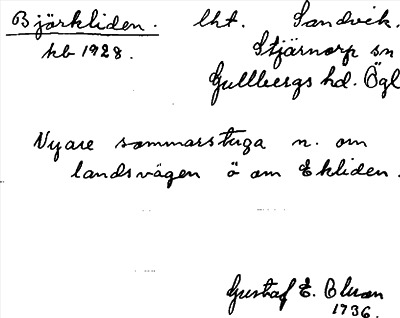 Björkliden. lht. Sandvik.
kb 1928. Stjärnorp sn
Gullbergs hd. Ögl
Nyare sommarstuga n. om
landsvägen ö om Ekliden.
Gustaf E.
1736.